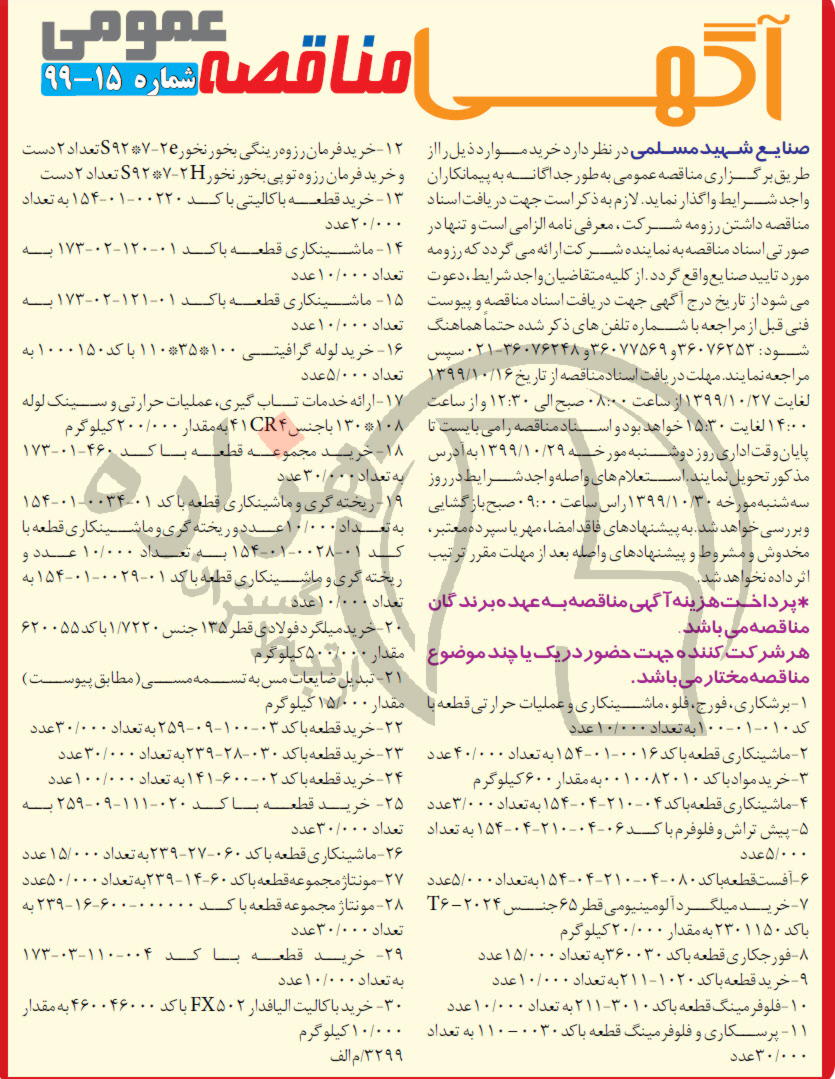 آگهی مناقصه عمومی
شماره ۱۵-۹۹
صنایع شهید مسلمی در نظر دارد خرید موارد ذیل را از
طریق برگزاری مناقصه عمومی به طور جداگانه به پیمانکاران
واجد شرایط واگذار نماید. لازم به ذکر است جهت دریافت اسناد
مناقصه داشتن رزومه شرکت، معرفی نامه الزامی است و تنها در
صورتی اسناد مناقصه به نماینده شرکت ارائه می گردد که رزومه
مورد تایید صنایع واقع گردد. از کلیه متقاضیان واجد شرایط، دعوت
می شود از تاریخ درج آگهی جهت دریافت اسناد مناقصه و پیوست
فنی قبل از مراجعه با شماره تلفن های ذکر شده حتماً هماهنگ
شود: ۳۶۰۷۶۲۵۳ و ۳۶۰۷۷۵۶۹ و ۳۶۰۷۶۲۴۸-۰۲۱ سپس
مراجعه نمایند. مهلت دریافت اسناد مناقصه از تاریخ ۱۳۹۹/۱۰/۱۶
لغایت ۱۳۹۹/۱۰/۲۷ از ساعت ۰۸:۰۰ صبح الی ۱۲:۳۰ و از ساعت
۱۴:۰۰ لغایت ۱۵:۳۰ خواهد بود و اسناد مناقصه را می بایست تا
پایان وقت اداری روز دوشنبه مورخه ۱۳۹۹/۱۰/۲۹ به آدرس
مذکور تحویل نمایند. استعلام های واصله واجد شرایط در روز
سه شنبه مورخه ۱۳۹۹/۱۰/۳۰ راس ساعت ۰۹:۰۰ صبح بازگشایی
و بررسی خواهد شد. به پیشنهادهای فاقد امضا، مهر یا سپرده معتبر،
مخدوش و مشروط و پیشنهادهای واصله بعد از مهلت مقرر ترتیب
اثر داده نخواهد شد.
*پرداخت هزینه آگهی مناقصه به عهده برندگان
مناقصه می باشد.
هر شرکت کننده جهت حضور در یک یا چند موضوع
مناقصه مختار می باشد.
۱-برشکاری، فورج، فلو، ماشینکاری و عملیات حرارتی قطعه با
کد ۰۱۰-۰۱-۱۰۰ به تعداد ۱۰/۰۰۰ عدد
۲-ماشینکاری قطعه با کد ۰۰۱۶-۰۱-۱۵۴ به تعداد ۴۰/۰۰۰ عدد
۳-خرید مواد با کد ۰۰۱۰۰۸۲۰۱۰ به مقدار ۶۰۰ کیلوگرم
۴-ماشینکاری قطعه با کد ۰۴-۲۱۰-۰۴-۱۵۴ به تعداد ۳/۰۰۰ عدد
۵-پیش تراش و فلوفرم با کد ۰۶-۰۴-۲۱۰-۰۴-۱۵۴ به تعداد
۵/۰۰۰ عدد
۶-آفست قطعه با کد ۰۸۰-۰۴-۲۱۰-۰۴-۱۵۴ به تعداد ۵/۰۰۰ عدد
۷-خرید میلگرد آلومینیومی قطر ۶۵ جنس ۲۰۲۴-T۶
با کد ۲۳۰۱۱۵۰ به مقدار ۲۰/۰۰۰ کیلوگرم
۸-فورجکاری قطعه با کد ۳۶۰۰۳۰ به تعداد ۱۵/۰۰۰ عدد
۹-خرید قطعه با کد ۱۰۲۰-۲۱۱ به تعداد ۱۰/۰۰۰ عدد
۱۰-فلوفرمینگ قطعه با کد ۳۰۱۰-۲۱۱ به تعداد ۱۰/۰۰۰ عدد
۱۱-پرسکاری و فلوفرمینگ قطعه با کد ۰۰۳۰-۱۱۰ به تعداد
۳۰/۰۰۰ عدد
۱۲-خرید فرمان رزوه رینگی بخور نخور S۹۲*۷-۲e تعداد ۲ دست
و خرید فرمان رزوه توپی بخور نخور S۹۲*۷-۲H تعداد ۲ دست
۱۳-خرید قطعه باکالیتی با کد ۰۰۲۲۰-۰۱-۱۵۴ به تعداد
۲۰/۰۰۰ عدد
۱۴- ماشینکاری قطعه با کد ۰۱-۱۲۰-۰۲-۱۷۳ به
تعداد ۱۰/۰۰۰ عدد
۱۵- ماشینکاری قطعه با کد ۰۱-۱۲۱-۰۲-۱۷۳ به
تعداد ۱۰/۰۰۰ عدد
۱۶-خرید لوله گرافیتی ۱۰۰*۳۵*۱۱۰ با کد ۱۰۰۰۱۵۰ به
تعداد ۵/۰۰۰ عدد
۱۷-ارائه خدمات تاب گیری، عملیات حرارتی و سینک لوله
۱۰۸*۱۳۰ با جنس ۴۱CR۴ به مقدار ۲۰۰/۰۰۰ کیلوگرم
۱۸-خرید مجموعه قطعه با کد ۴۶۰-۰۱-۱۷۳
به تعداد ۳۰/۰۰۰ عدد
۱۹-ریخته گری و ماشینکاری قطعه با کد ۰۱-۰۰۳۴-۰۱-۱۵۴
به تعداد ۱۰/۰۰۰ عدد و ریخته گری و ماشینکاری قطعه با
کد ۰۱-۰۰۲۸-۰۱-۱۵۴ به تعداد ۱۰/۰۰۰ عدد و
ریخته گری و ماشینکاری قطعه با کد ۰۱-۰۰۲۹-۰۱-۱۵۴ به
تعداد ۱۰/۰۰۰ عدد
۲۰-خرید میلگرد فولادی قطر ۱۳۵ جنس ۱/۷۲۲۰ با کد ۶۲۰۰۵۵
مقدار ۵۰۰/۰۰۰ کیلوگرم
۲۱-تبدیل ضایعات مس به تسمه مسی (مطابق پیوست)
مقدار ۱۵/۰۰۰ کیلوگرم
۲۲-خرید قطعه با کد ۰۳-۱۰۰-۰۹-۲۵۹ به تعداد ۳۰/۰۰۰ عدد
۲۳-خرید قطعه با کد ۰۳۰-۲۸-۲۳۹ به تعداد ۳۰/۰۰۰ عدد
۲۴-خرید قطعه با کد ۰۲-۶۰۰-۱۴۱ به تعداد ۱۰۰/۰۰۰ عدد
۲۵- خرید قطعه با کد ۰۲۰-۱۱۱-۰۹-۲۵۹ به
تعداد ۳۰/۰۰۰ عدد
۲۶-ماشینکاری قطعه با کد ۰۶۰-۲۷-۲۳۹ به تعداد ۱۵/۰۰۰ عدد
۲۷-مونتاژ مجموعه قطعه با کد ۶۰-۱۴-۲۳۹ به تعداد ۵۰/۰۰۰ عدد
۲۸-مونتاژ مجموعه قطعه با کد ۰۰۰۰۰۰-۶۰۰-۱۶-۲۳۹ به
تعداد ۳۰/۰۰۰ عدد
۲۹- خرید قطعه با کد ۰۰۴-۱۱۰-۰۳-۱۷۳
به تعداد ۱۰/۰۰۰ عدد
۳۰-خرید باکالیت الیافدار FX۵۰۲ با کد ۴۶۰۰۴۶۰۰۰ به مقدار
۱۰/۰۰۰ کیلوگرم
۳۲۹۹/م الف
هزاره